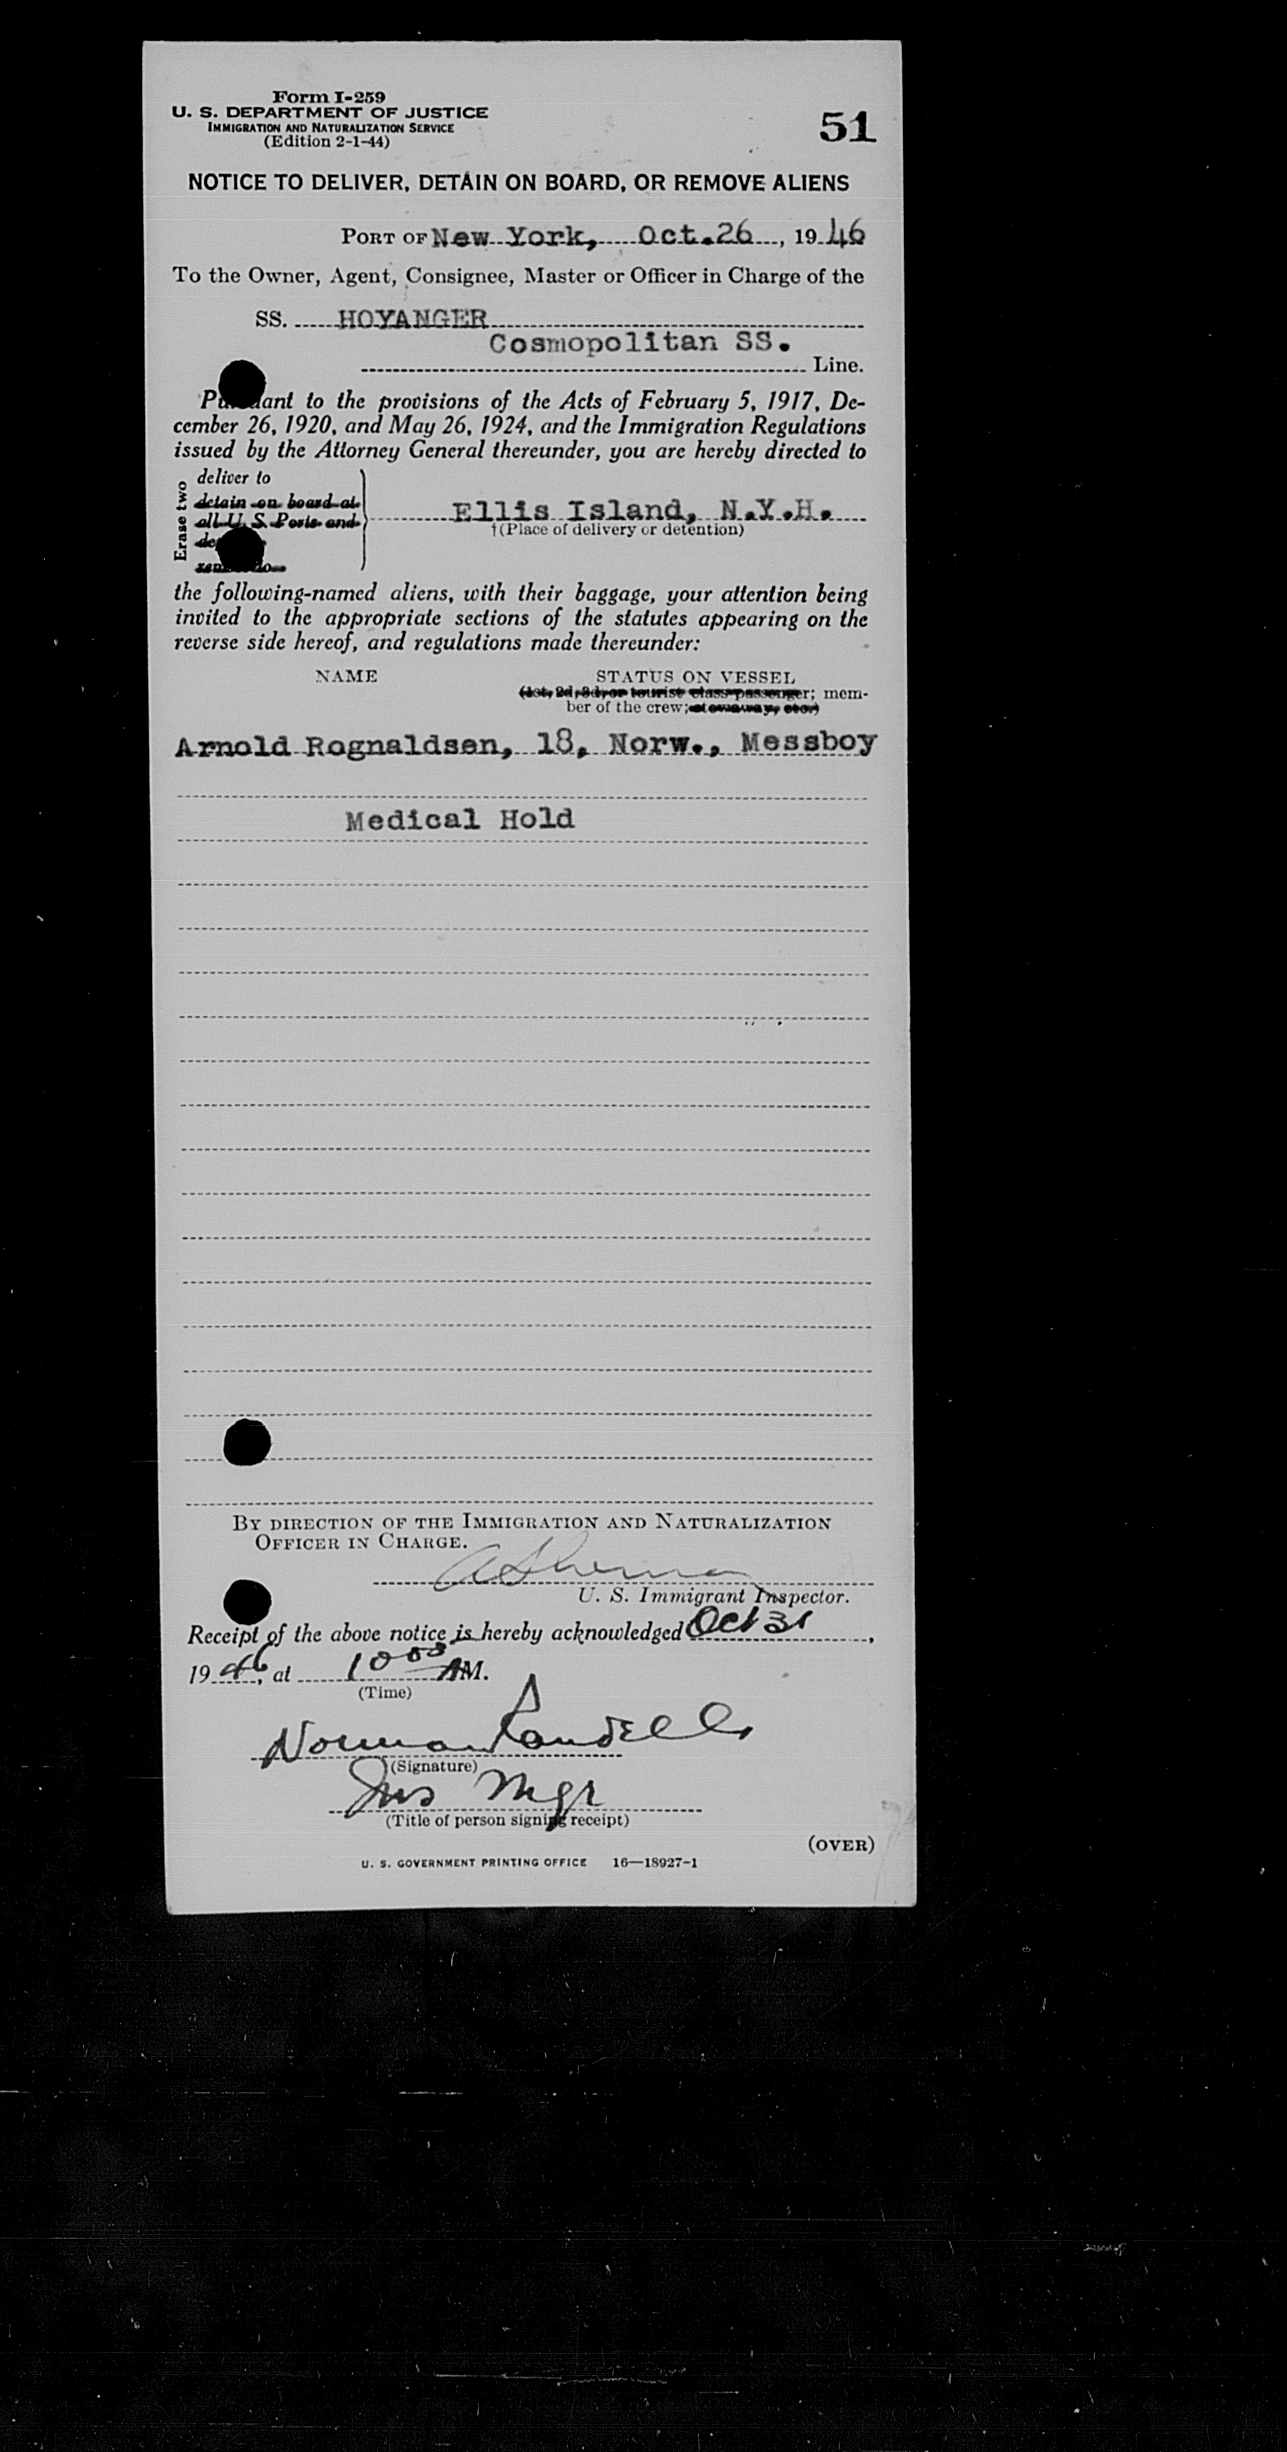 Form I-259
U. S. DEPARTMENT OF JUSTICE
IMMIGRATION AND NATURALIZATION SERVICE
(Edition 2-1-44)
51
NOTICE TO DELIVER, DETAIN ON BOARD, OR REMOVE ALIENS
PORT OF New York, Oct.26, 19 46
To the Owner, Agent, Consignee, Master or Officer in Charge of the
SS. HOYANGER
Cosmopolitan SS.
Line.
Pursuant to the provisions of the Acts of February 5, 1917, De-
cember 26, 1920, and May 26, 1924, and the Immigration Regulations
issued by the Attorney General thereunder, you are hereby directed to
Erase two
deliver to
detain on board at
all U. S. Ports and
Ellis Island, N.Y.H.
†(Place of delivery or detention)
the following-named aliens, with their baggage, your attention being
invited to the appropriate sections of the statutes appearing on the
reverse side hereof, and regulations made thereunder:
NAME
STATUS ON VESSEL
(1st, 2d, 3d, or tourist class passenger; mem-
ber of the crew; stowaway, etc.)
Arnold Rognaldsen, 18, Norw., Messboy
Medical Hold
BY DIRECTION OF THE IMMIGRATION AND NATURALIZATION
OFFICER IN CHARGE.
U. S. Immigrant Inspector.
Receipt of the above notice is hereby acknowledged Oct 31,
19 46, at 10 00 AM.
(Time)
Norman
(Signature)
Mgr
(Title of person signing receipt)
(OVER)
U. S. GOVERNMENT PRINTING OFFICE 16—18927-1